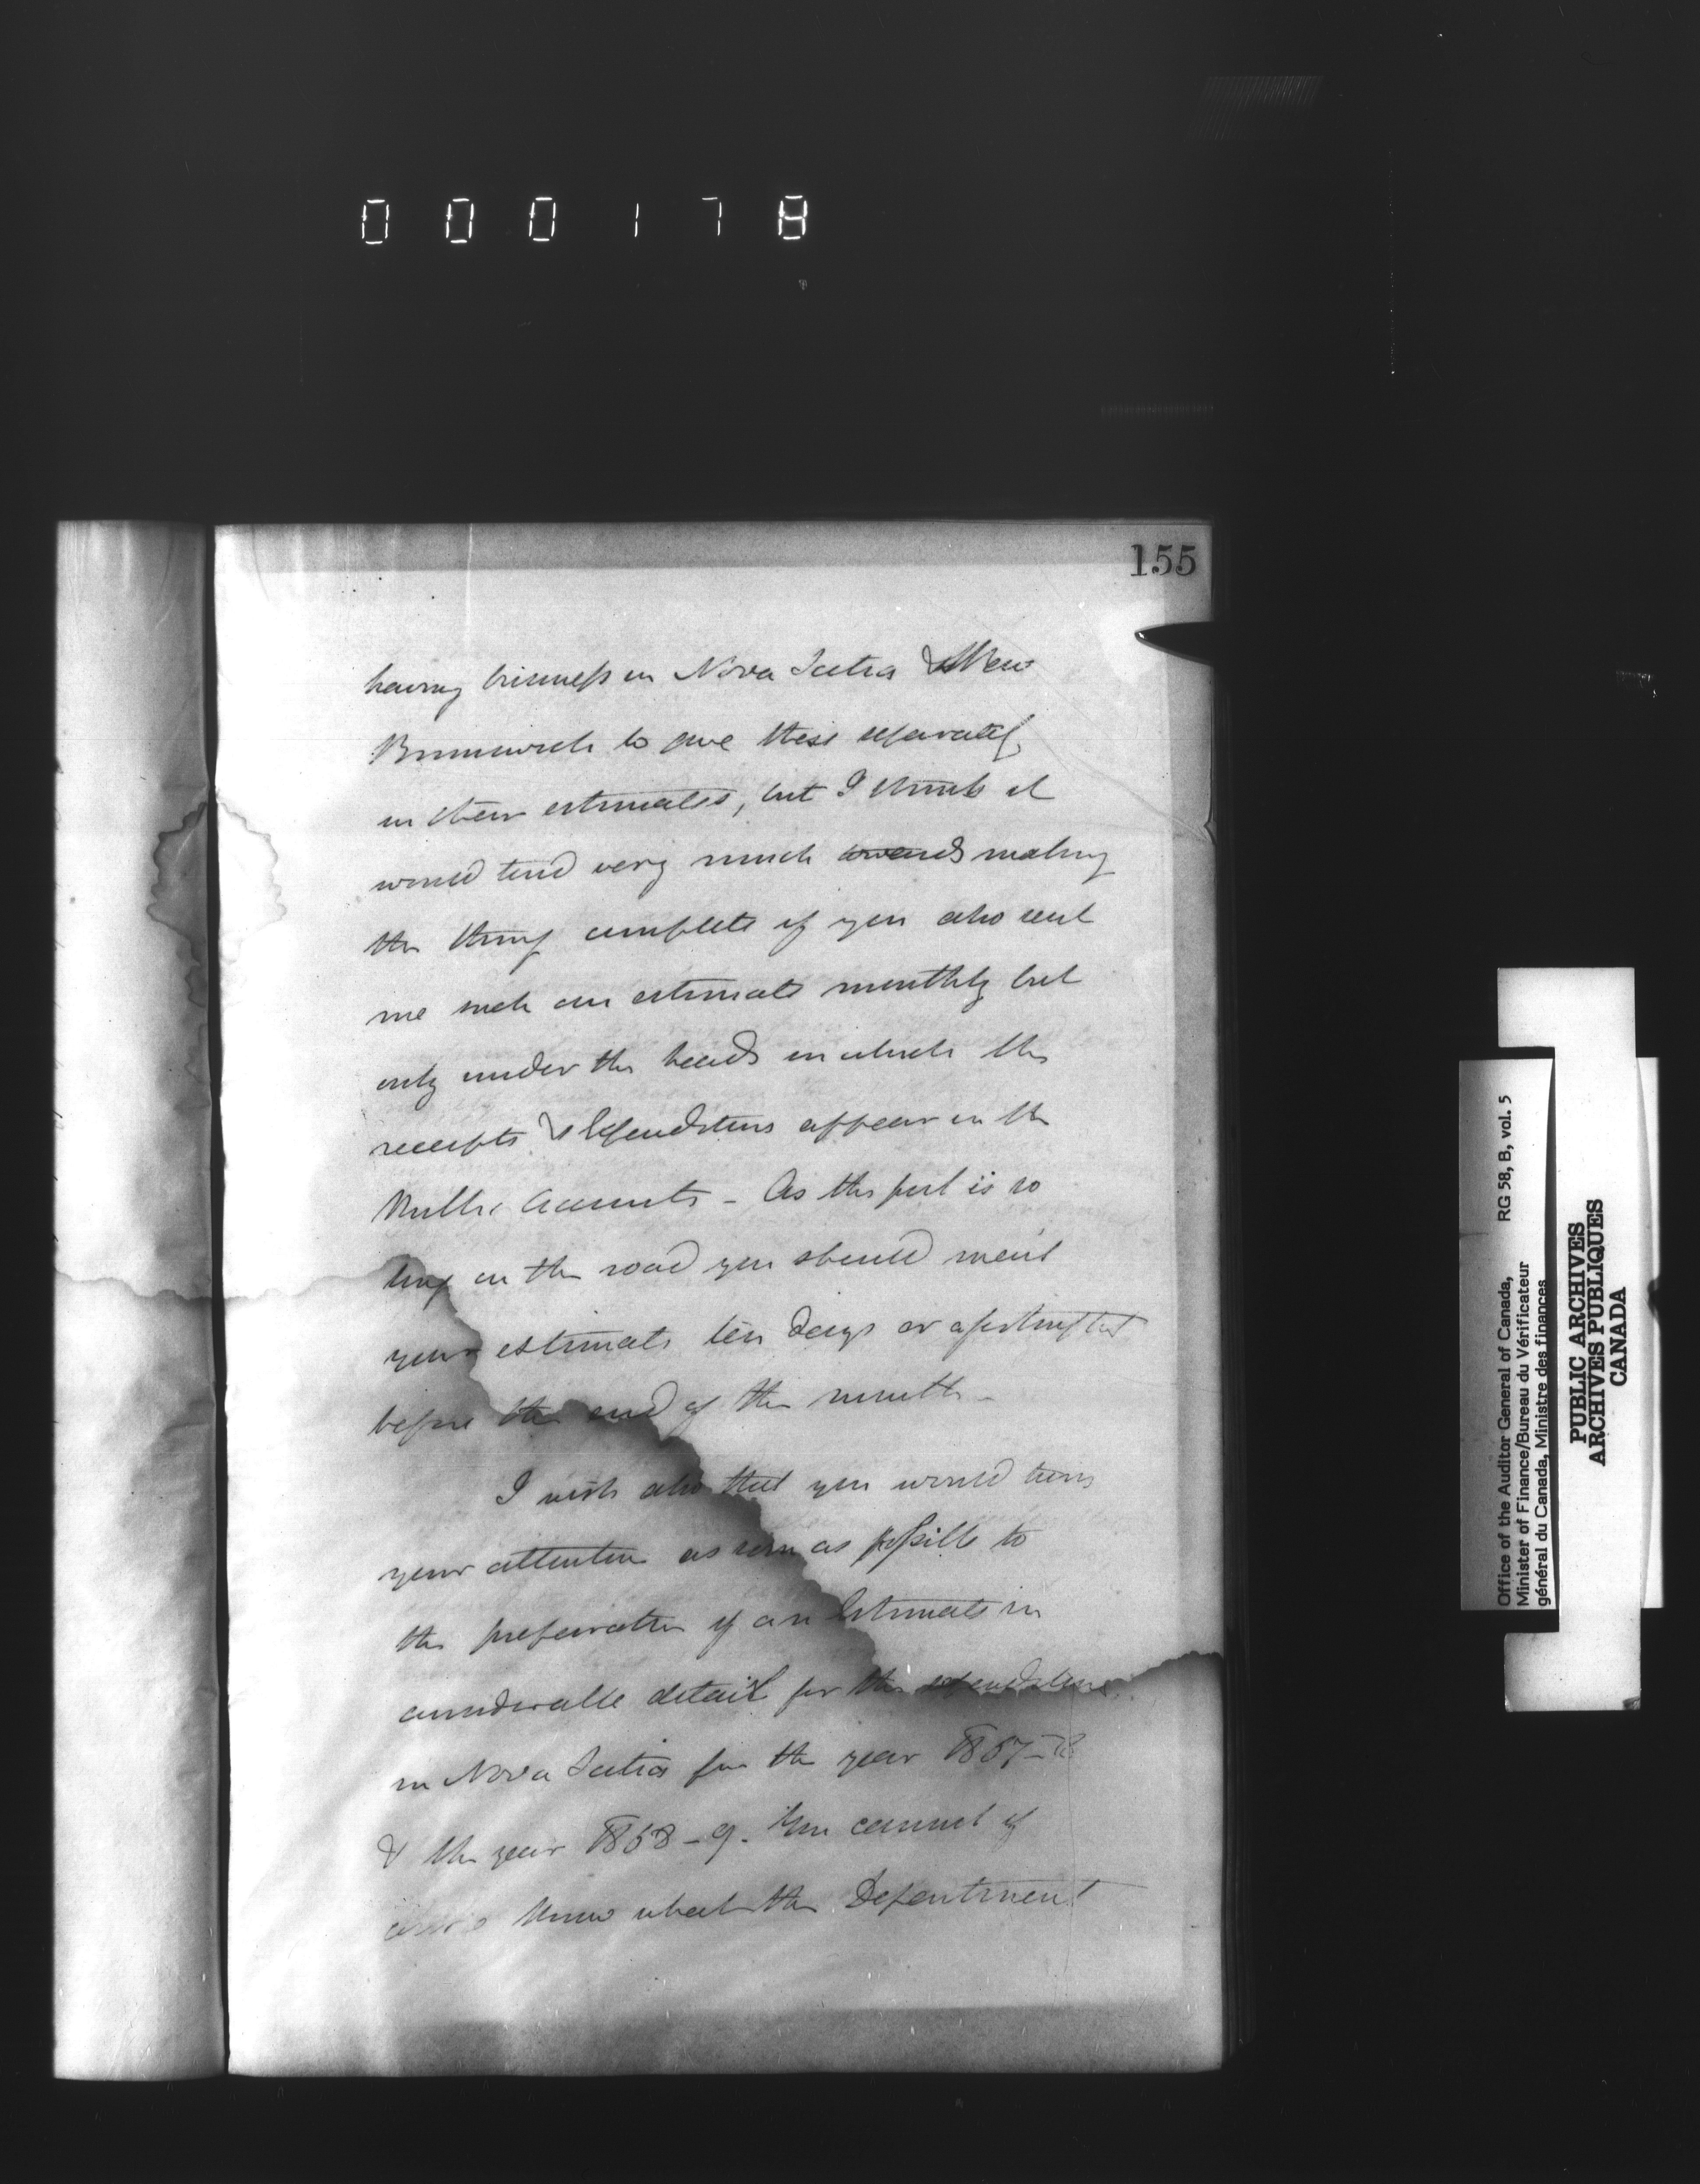 000178
155
having business in Nova Scotia & New
Brunswick to give these separately
in their estimates, but I think it
would tend very much towards making
the thing complete if you also sent
me such an estimate monthly but
only under the heads in which the
receipts & Expenditures appear in the
Public Accounts - As the post is so
long on the road you should mail
your estimate ten days or a fortnight
before the end of the month -
I wish also that you would turn
your attention as soon as possible to
the preparation of an Estimate in
considerable detail for the expenditure
in Nova Scotia for the year 1867-8
& the year 1868-9. You cannot of
course know what the Department
Office of the Auditor General of Canada, RG 58, B, vol. 5
Minister of Finance/Bureau du Vérificateur
général du Canada, Ministre des finances
PUBLIC ARCHIVES
ARCHIVES PUBLIQUES
CANADA